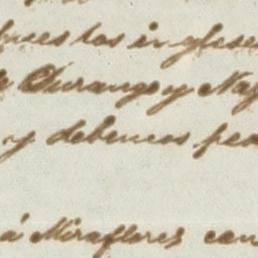 pues los inglese
Durango y Na
y debemos pe
á Miraflores con